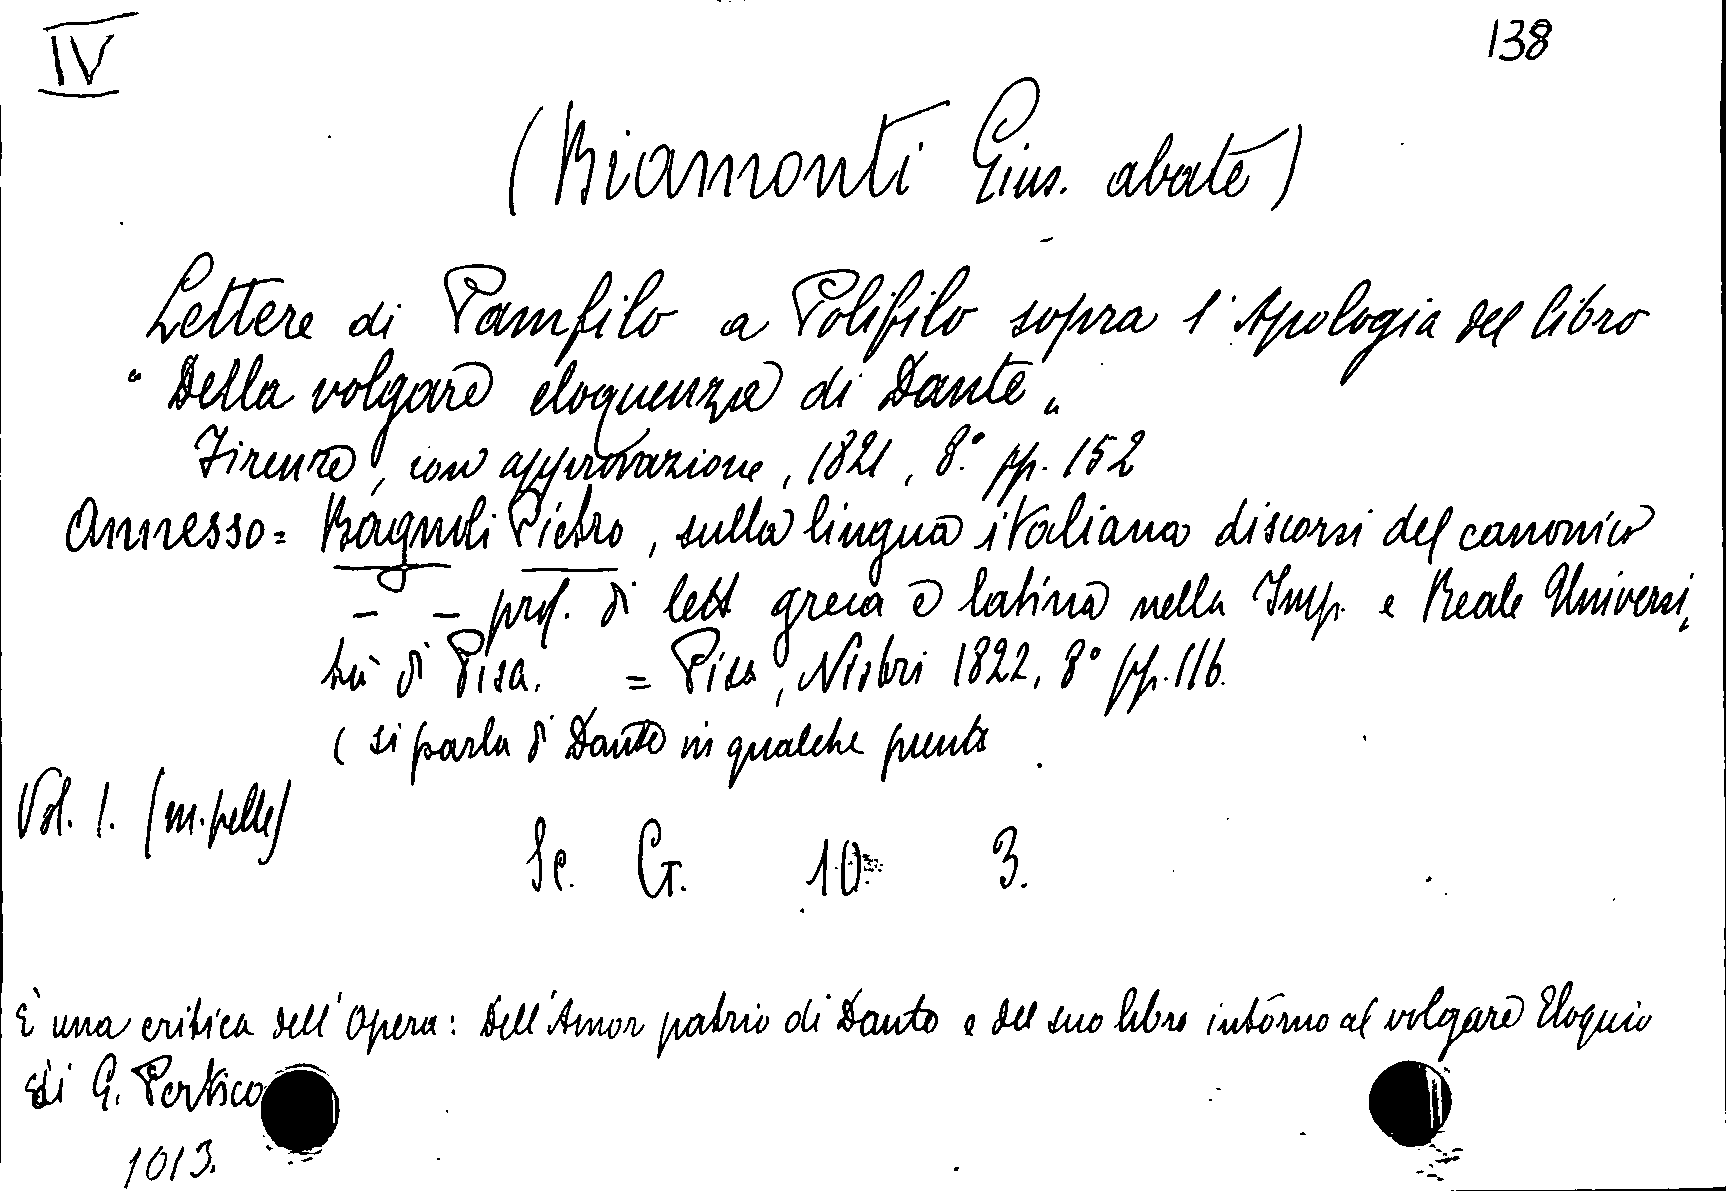 IV
138
(Biamonti Gius. abate)
Lettere di Pamfilo a Polifilo sopra l'Apologia del libro
"Della volgare eloquenza di Dante"
Firenze, con approvazione, 1821, 8.° pp. 152
Annesso = Bagnoli Pietro, sulla lingua italiana discorsi del canonico
- - prof. di lett greca e latina nella Imp. e Reale Universi,
tà di Pisa. = Pisa, Nistri 1822, 8° pp. 116.
(si parla di Dante in qualche punto
Vol. 1. (m. pelle)
Sc. G. 10 3.
È una critica dell'Opera: Dell'Amor patrio di Dante e del suo libro intorno al volgare Eloquio
di G. Perticari
1013.